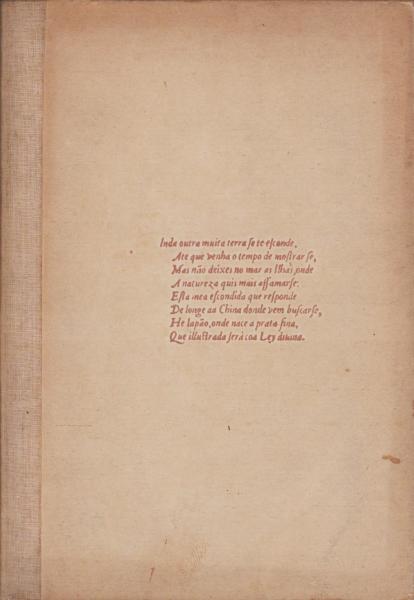 Inda outra muita terra ſe te eſconde,
Ate que venha o tempo de moſtrar ſe,
Mas não deixes no mar as Ilhas onde
A natureza quis mais affamarſe:
Eſta mea eſcondida que reſponde
De longe aa China donde vem buſcarſe,
He Iapão, onde nace a prata fina,
Que illuſtrada ſerà coa Ley diuina.